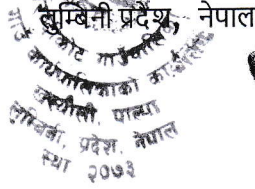 लुम्बिनी प्रदेश, नेपाल
गाउँ कार्यपालिकाको कार्यालय
पाल्पा
लुम्बिनी, प्रदेश, नेपाल
स्था २०७३